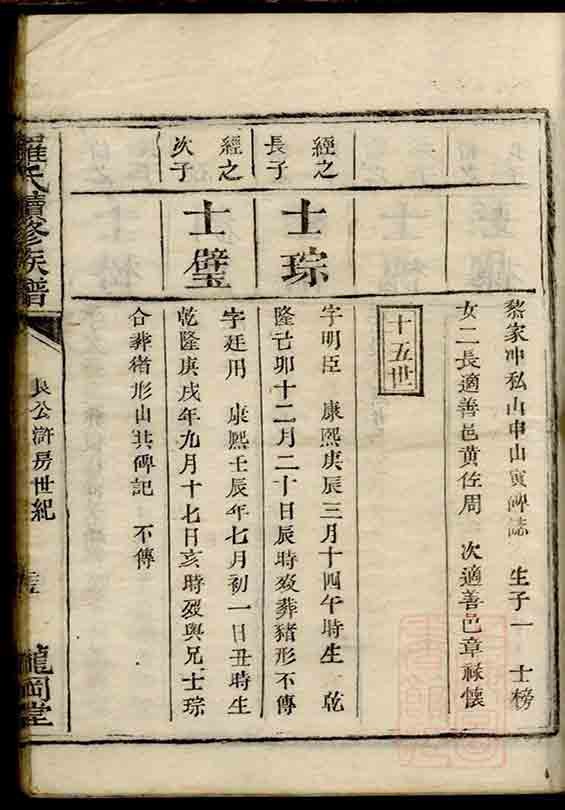 黎家冲私山申山寅碑誌　生子一　士榜
女二長適善邑黃佐周　次適善邑章祿懷
十五世
經之
長子
士琮
字明臣　康熙庚辰三月十四午時生　乾
隆己卯十二月二十日辰時歿葬豬形不傳
經之
次子
士璧
字廷用　康熙壬辰年七月初一日丑時生
乾隆庚戌年九月十七日亥時歿與兄士琮
合葬猪形山共碑記　不傳
羅氏續修族譜
長公滸房世紀
龍岡堂